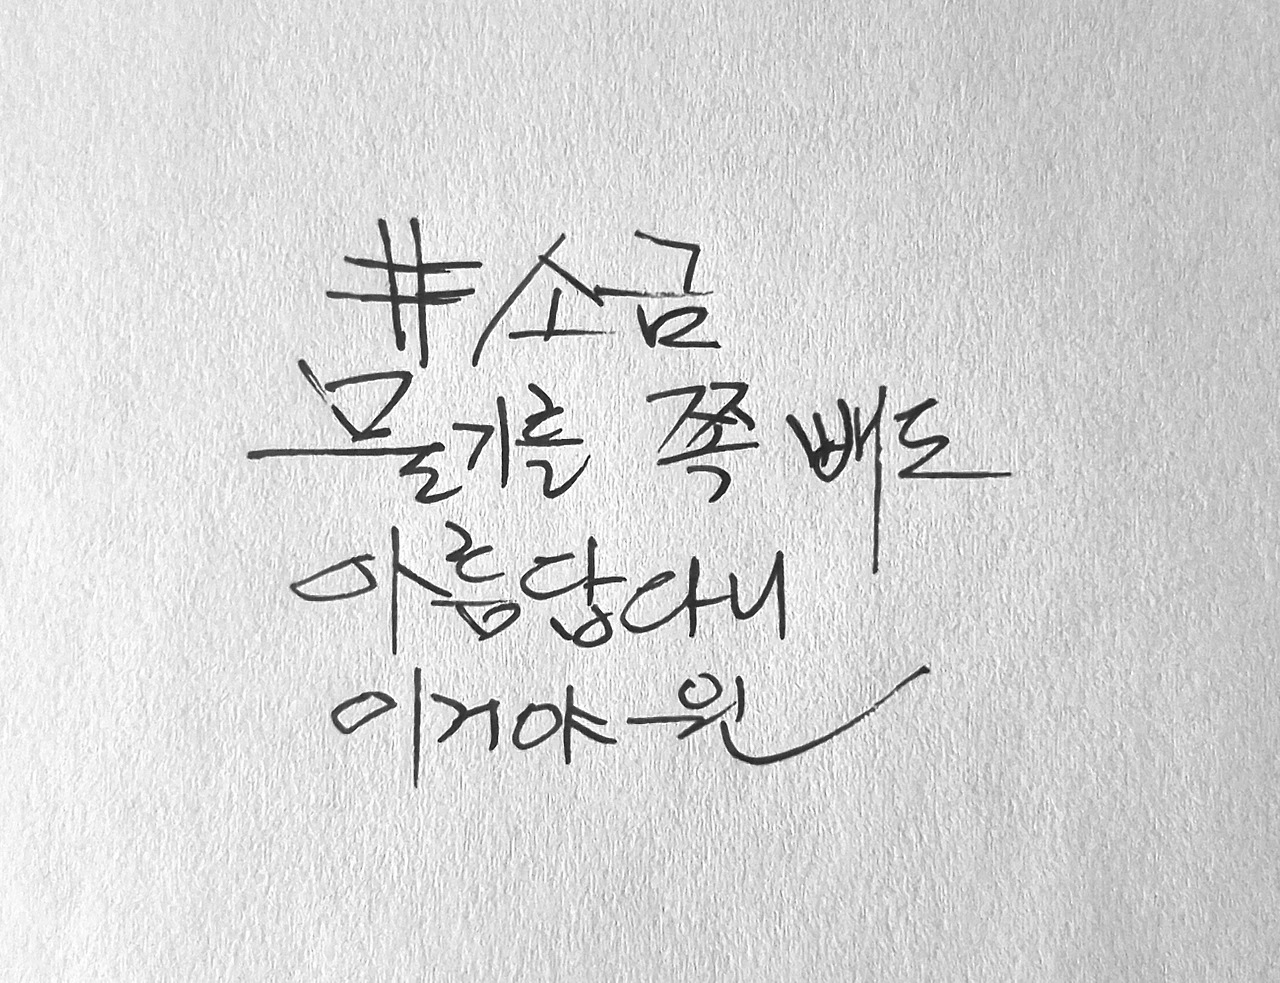 #소금
물기를 쪽 빼도
아름답다니
이거야 원